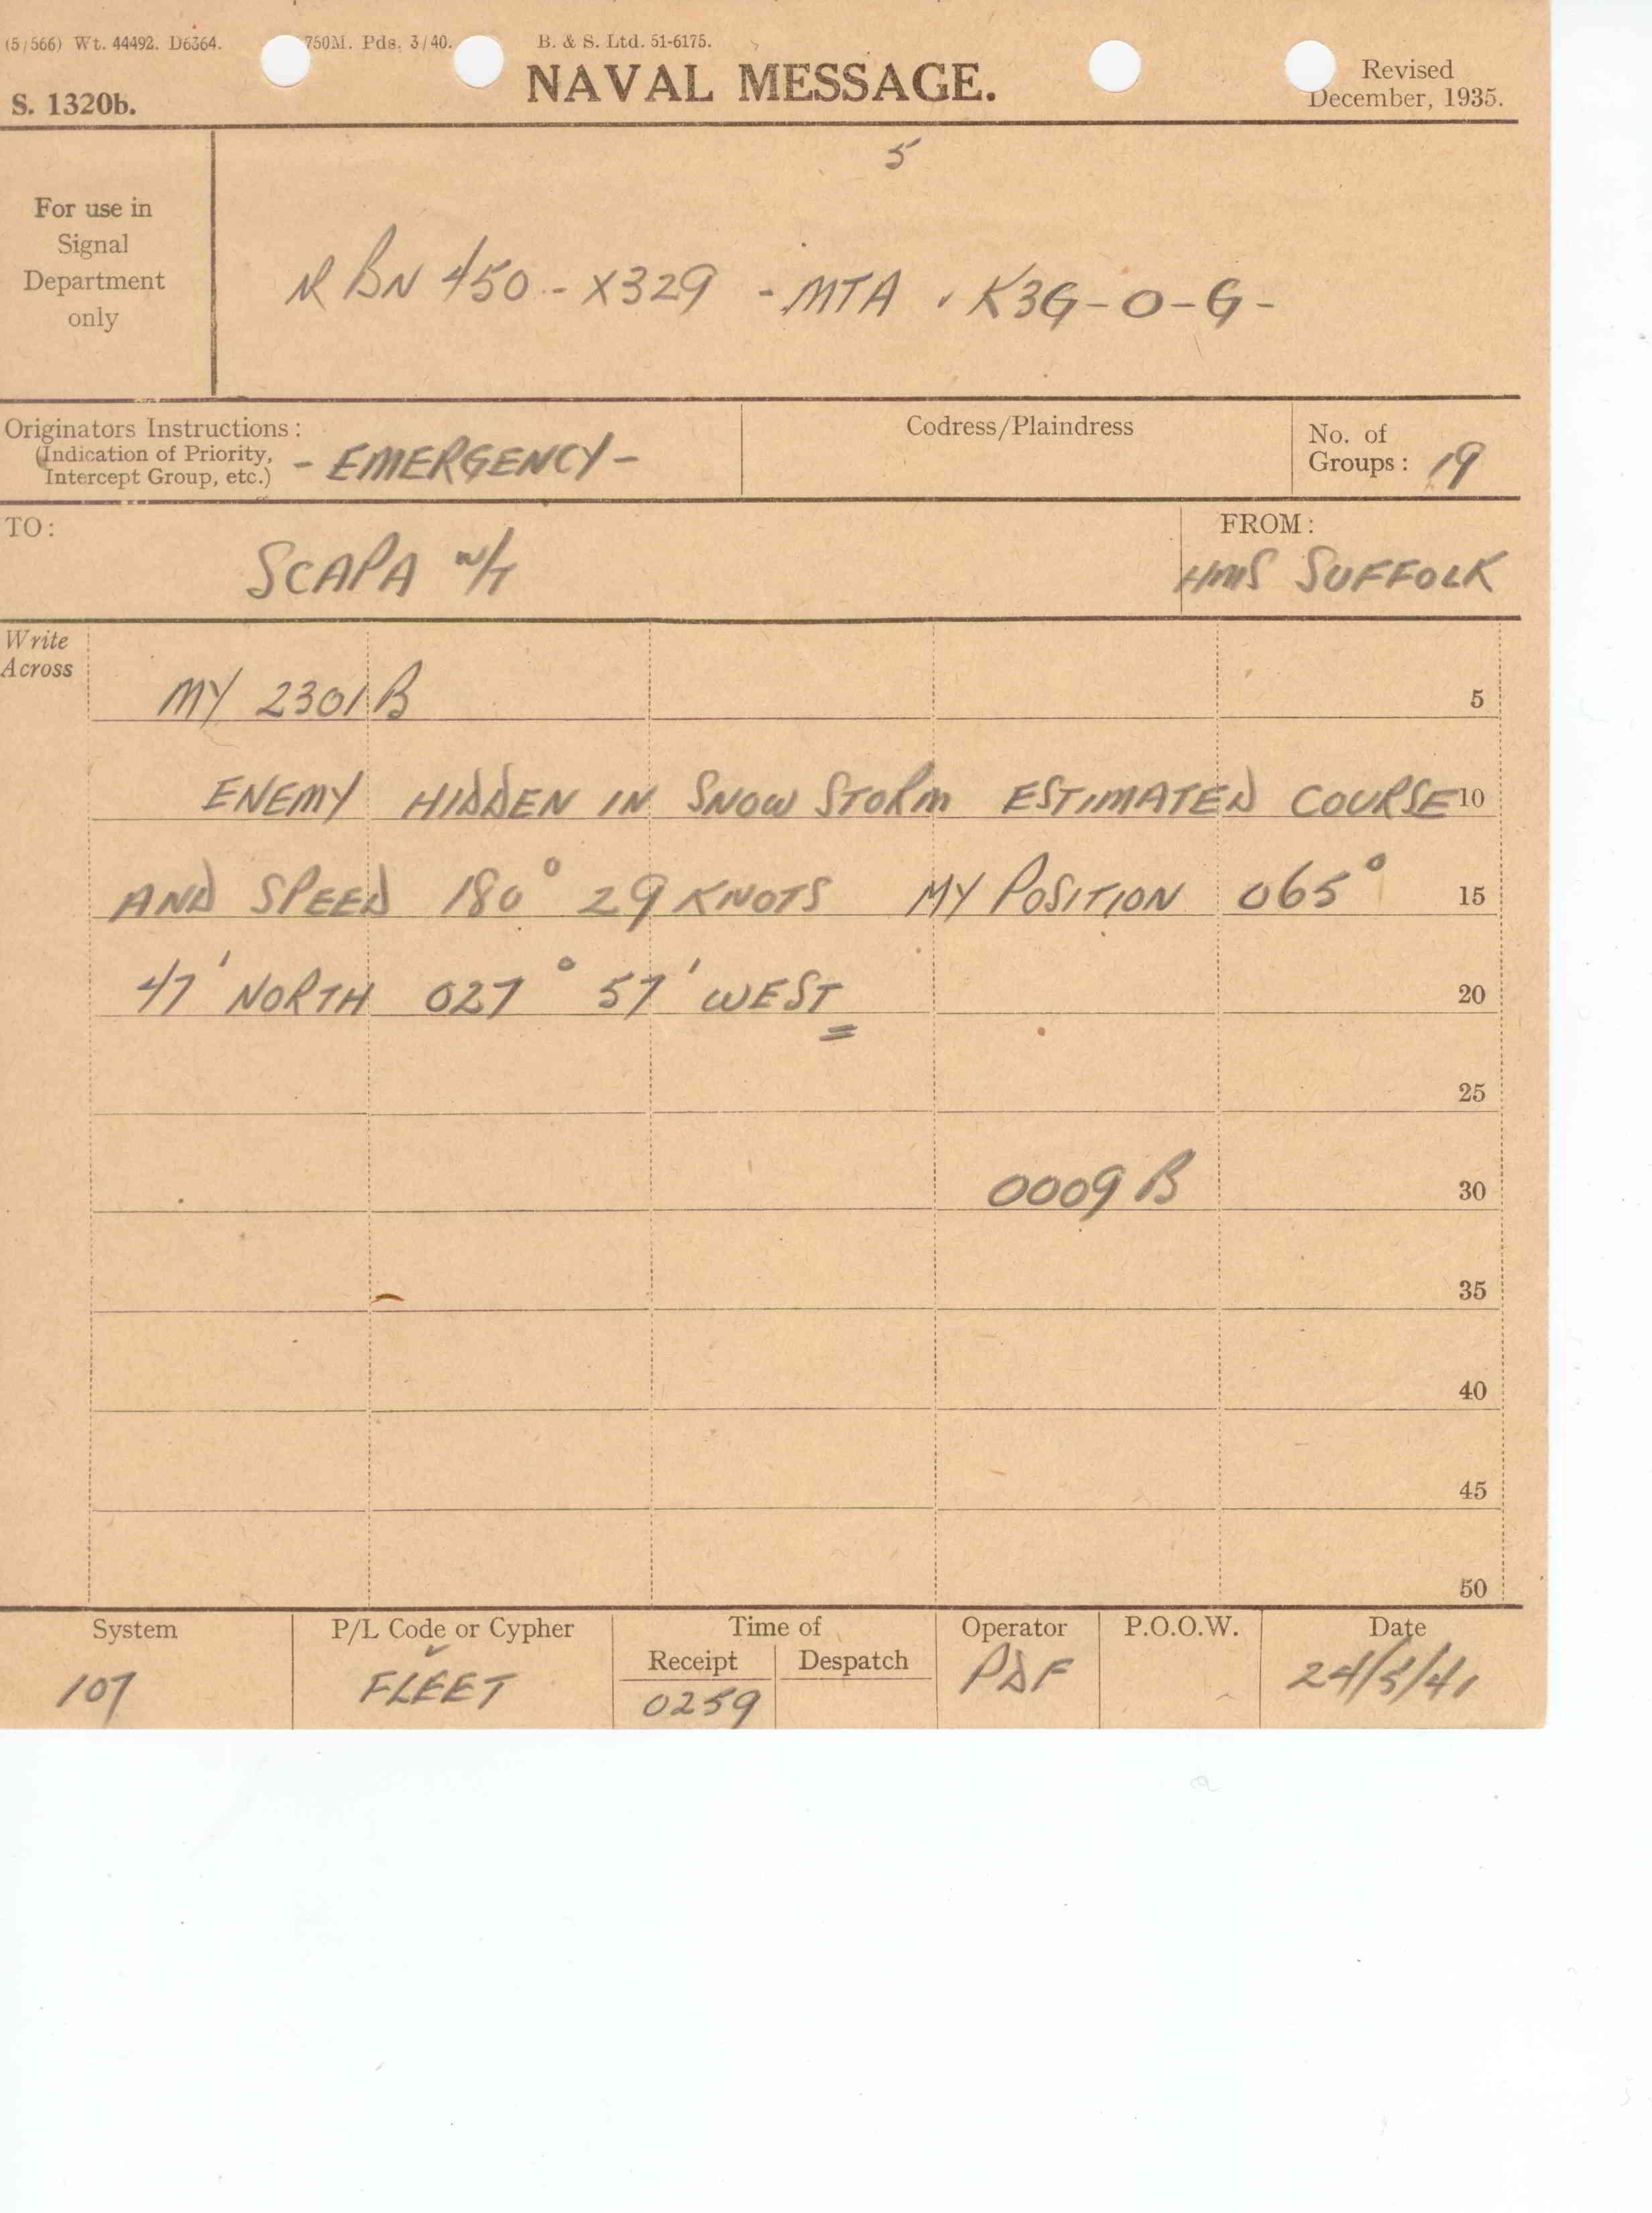 (5/566) Wt. 44492. D6364. 750M. Pds. 3/40. B. & S. Ltd. 51-6175.
S. 1320b. NAVAL MESSAGE. Revised
December, 1935.
5
For use in
Signal
Department
only
BN 450 - X329 - MTA . K3G-O-G-
Originators Instructions:
(Indication of Priority,
Intercept Group, etc.) - EMERGENCY -
Codress/Plaindress
No. of
Groups: 19
TO:
SCAPA W/T
FROM:
HMS SUFFOLK
Write
Across
MY 2301B 5
ENEMY HIDDEN IN SNOW STORM ESTIMATED COURSE 10
AND SPEED 180° 29 KNOTS MY POSITION 065° 15
47' NORTH 027° 57' WEST 20
25
0009 B 30
35
40
45
50
System P/L Code or Cypher Time of Operator P.O.O.W. Date
Receipt Despatch
107 FLEET 0259 PDF 24/5/41